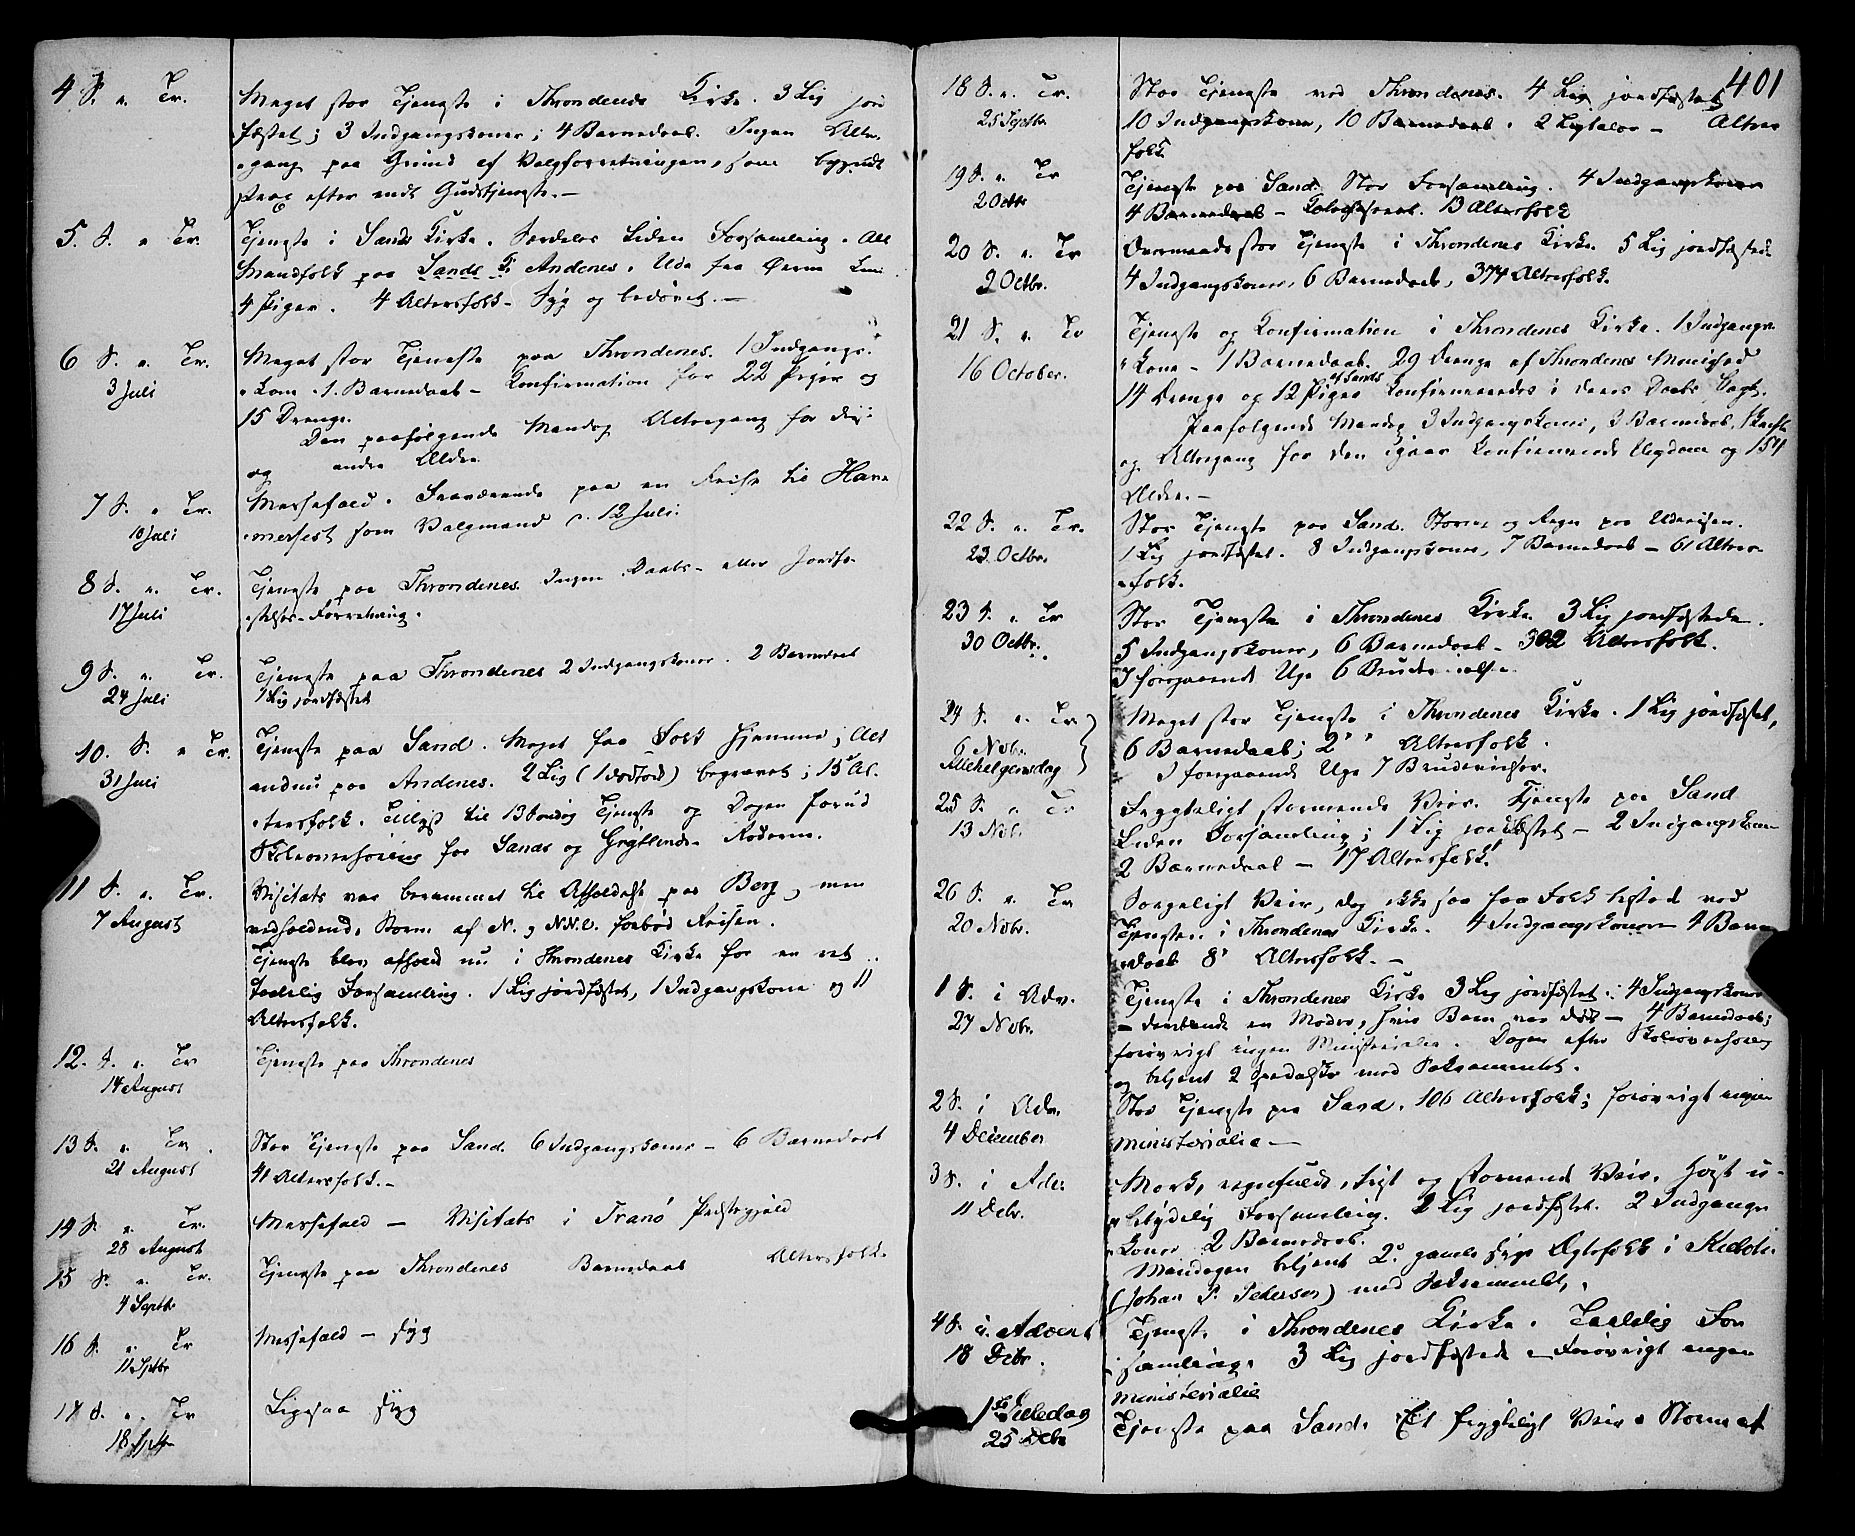 4 S. e. Tr.
Meget stor Tjeneste i Throndenes Kirke. 3 Lig jord
fæstet; 3 Indgangskoner; 4 Barnedaab. Ingen Alter-
gang paa Grund af Valgforretningen, som begyndte
strax efter endt Gudstjeneste.—
5. S. e. Tr.
Tjeneste i Sands Kirke. Særdeles liden Forsamling. Alt
Mandfolk paa Sands & Andenes. Ude fra Øerne kun
4 Piger. 4 Altersfolk— Syg og bedøvet.—
6 S. e. Tr.
3 Juli
Meget stor Tjeneste paa Throndenes. 1 Indgangs-
kone. 1. Barnedaab— Konfirmation for 22 Piger og
15 Drenge.
Den paafølgende Mandag Altergang for disse
og andre Ældre
7 S. e. Tr.
10 Juli
Messefald. Fraværende paa en Reise til Ham
merfest som Valgmand d. 12 Juli.
8 S. e. Tr.
17 Juli
Tjeneste paa Throndenes. Ingen Daabs- eller Jordfæ-
stelses-Forretning.
9 S. e. Tr.
24 Juli
Tjeneste paa Throndenes 2 Indgangskoner. 2 Barnedaab
1 Lig jordfæstet
10. S. e Tr.
31 Juli
Tjeneste paa Sand. Meget faa Folk hjemme; Alt
endnu paa Andenes. 2 Lig (1 dødfød) begravet; 15 Al-
tersfolk. Tillyst til 13 Søndag Tjeneste og Dagen forud
Skoleoverhøring for Sands og Grøtlands Roderne.
11 S. e. Tr.
7 August
Visitats var berammet til Afholdelse paa Berg, men
vedholdende Storm af N. og N.N.O. forbød Reisen.
Tjeneste blev afholdt nu i Throndenes Kirke for en ret
taalelig Forsamling. 1 Lig jordfæstet, 1 Indgangskone og 11
Altersfolk.
12. S. e. Tr
14 August
Tjeneste paa Throndenes
13 S. e. Tr.
21 August
Stor Tjeneste paa Sand. 6 Indgangskoner— 6 Barnedaab
41 Altersfolk.—
14 S. e. Tr.
28 August
Messefald — Visitats i Tranø Præstegjeld
15 S. e. Tr.
4 Septbr
Tjeneste paa Throndenes Barnedaab Altersfolk.
16 S. e. Tr
11 Septbr
Messefald — Syg
17 S. e. Tr
18 Septbr
Ligesaa Syg
401
18 S. e. Tr.
25 Septbr.
Stor Tjeneste ved Throndenes. 4 Lig jordfæstet
10 Indgangskoner, 10 Barnedaab. 2 Ligtaler — Alters
folk
19 S. e. Tr
2 Octbr
Tjeneste paa Sand. Stor Forsamling. 4 Indgangskoner
4 Barnedaab — 13 Altersfolk
20 S. e. Tr
9 Octbr.
Overmaade stor Tjeneste i Throndenes Kirke. 5 Lig jordfæstede
4 Indgangskoner, 6 Barnedaab, 374 Altersfolk.
21 S. e. Tr
16 October.
Tjeneste og Konfirmation i Throndenes Kirke. 1 Indgangs-
kone — 1 Barnedaab. 29 Drenge af Throndenes Menighed
14 Drenge og 12 Piger af Sands Konfirmeredes i deres Daabs Pagt.
Paafølgende Mandag 3 Indgangskoner, 3 Barnedaab,
og Altergang for den igaar konfirmerede Ungdom og 154
Ældre.—
22 S. e. Tr.
23 Octbr.
Stor Tjeneste paa Sand. Storm og Regn paa Udreisen.
1 Lig jordfæstet. 8 Indgangskoner, 7 Barnedaab — 61 Alters-
folk.
23 S. e. Tr
30 Octbr.
Stor Tjeneste i Throndenes Kirke. 3 Lig jordfæstede.
5 Indgangskoner, 6 Barnedaab — 302 Altersfolk.
I forgaaende Uge 6 Brudevielser
24 S. e. Tr
6 Nobr.
Allehelgensdag
Meget stor Tjeneste i Throndenes Kirke. 1 Lig jordfæstet,
6 Barnedaab; Altersfolk.
I forgaaende Uge 7 Brudevielser.
25 S. e. Tr
13 Nobr.
Frygteligt stormende Veir. Tjeneste paa Sand
Liden Forsamling; 1 Lig jordfæstet — 2 Indgangskoner
2 Barnedaab — 17 Altersfolk.
26 S. e. Tr
20 Nobr.
Sørgeligt Veir, dog ikke saa faa Folk tilstede ved
Tjenesten i Throndenes Kirke. 4 Indgangskoner 4 Barne
daab 8 Altersfolk.—
1 S. i Adv.
27 Nobr.
Tjeneste i Throndenes Kirke 3 Lig jordfæstet; 4 Indgangskoner
— deriblandt en Moder, hvis Barn var død — 4 Barnedaab;
forøvrigt ingen Ministerialia. Dagen efter Skoleoverhøring
og betjent 2 Spedalske med Sakramentet.
2 S. i Adv.
4 December
Stor Tjeneste paa Sand. 106 Altersfolk; forøvrigt ingen
ministerialia—
3 S. i Adv
11 Debr.
Mørk, regnfuldt, og stormende Veir. Høist u-
betydelig Forsamling. 2 Lig jordfæstet. 2 Indgangs
koner 2 Barnedaab.
Mandagen betjent 2 gamle syge Ægtefolk i
(Johan P. Pedersen) med Sakramentet.
4 S. i Advent
18 Debr.
Tjeneste i Throndenes Kirke. Taalelig For
samling. 3 Lig jordfæstede — Forøvrigt ingen
ministerialia
1ste Juledag
25 Debr
Tjeneste paa Sand. Et frygteligt Veir. Storm af